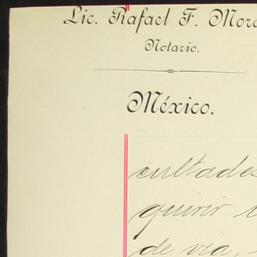 Lic. Rafael F. Mor
Notario.
México.
cultades
quirir
de via,